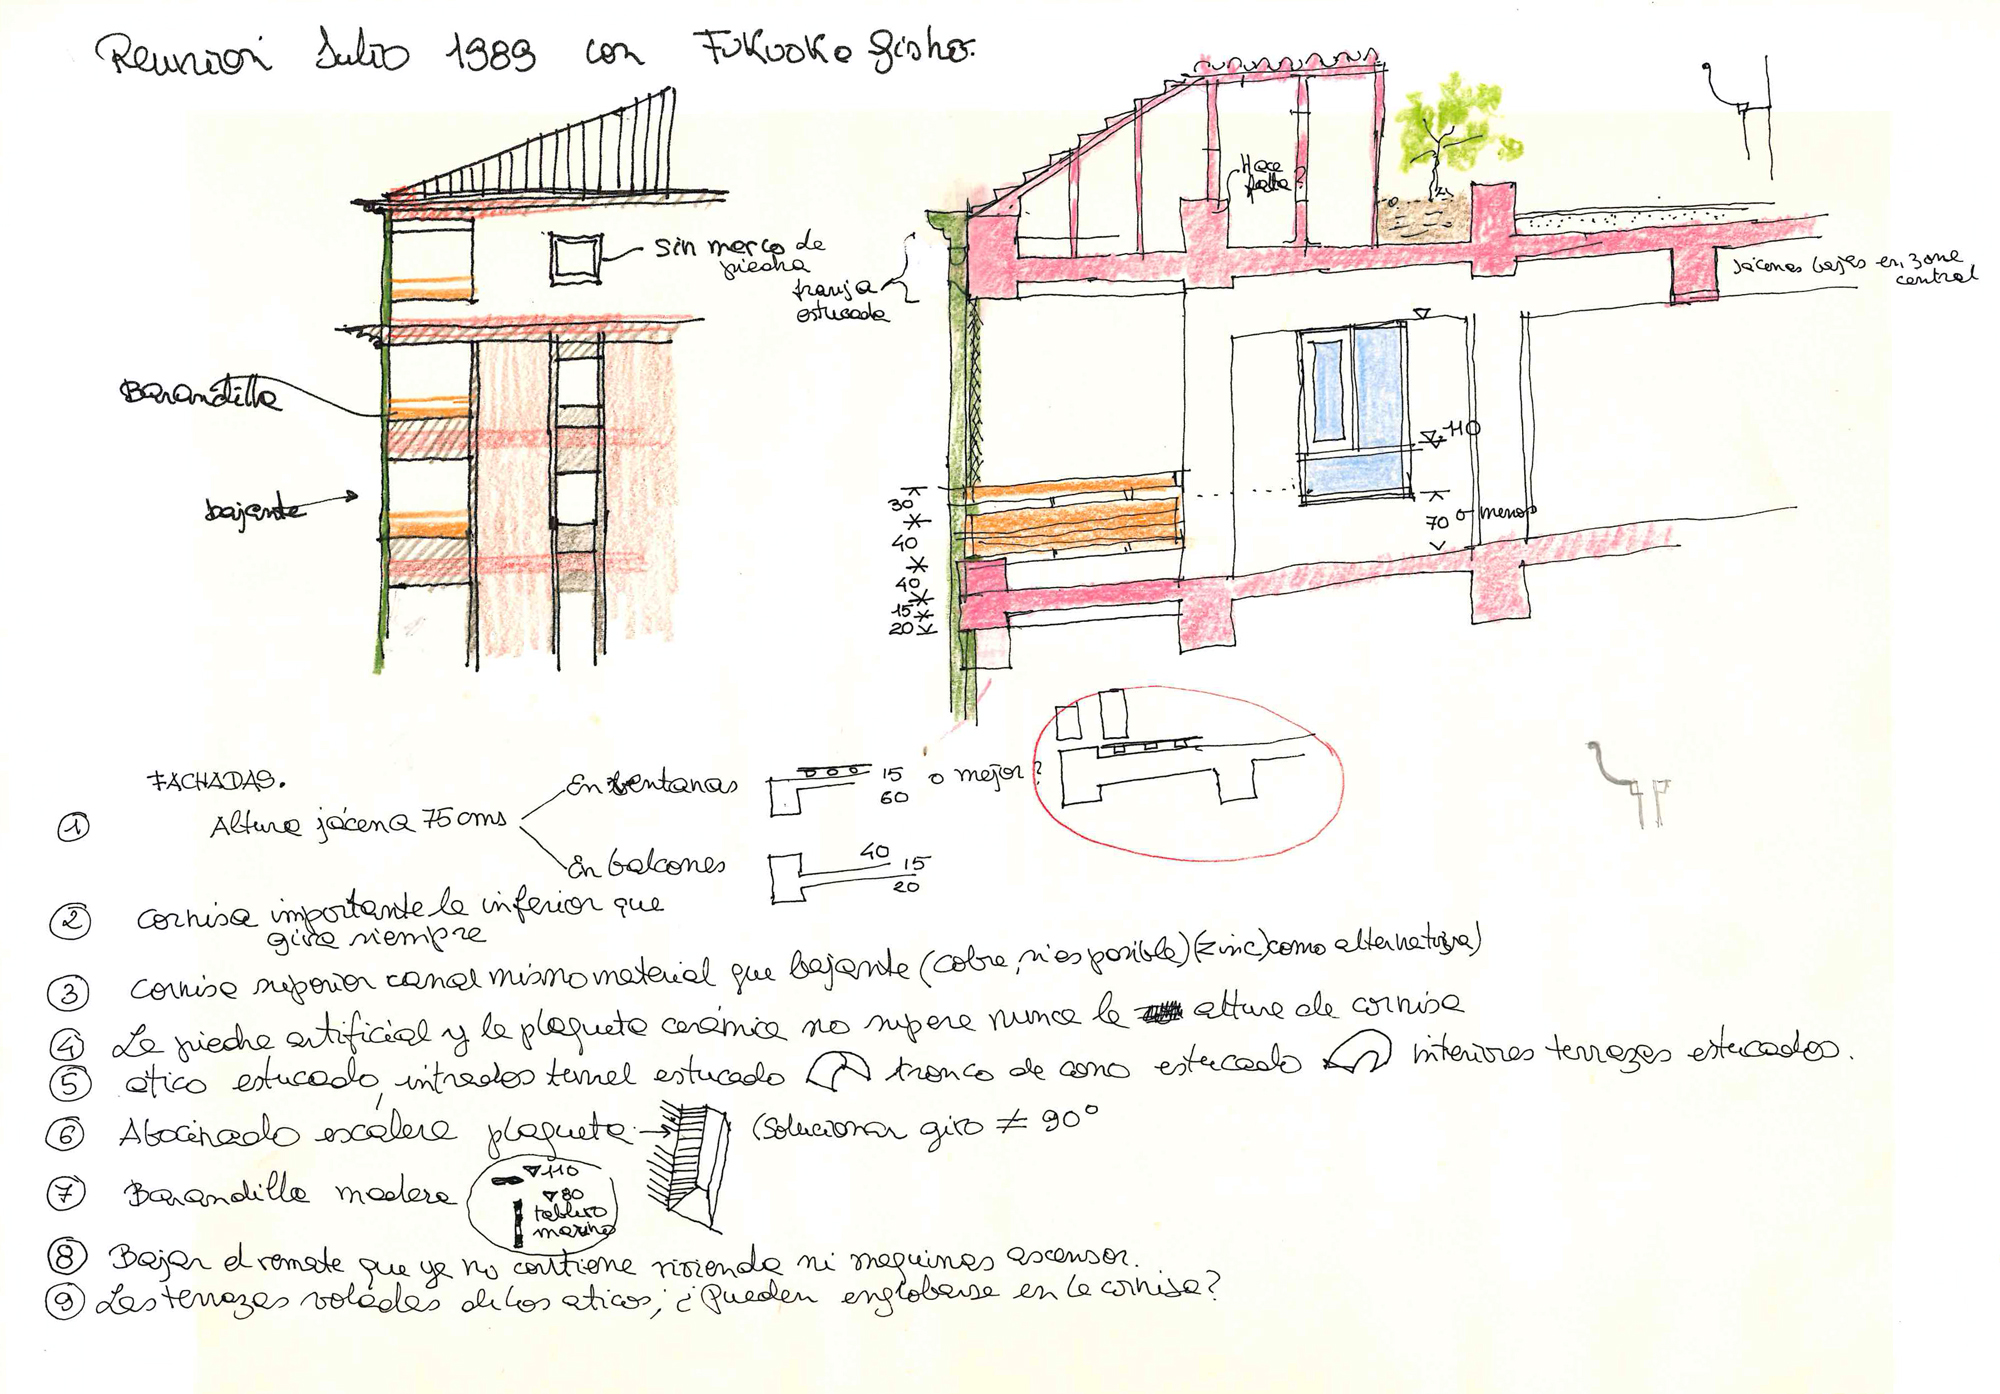 Reunion Julio 1989 con Fukuoka Jisho.
sin marco de
piedra
franja
estucada
Hace
falta?
Jácenas bajas en zona
central
Barandilla
bajante
110
70 o menos
30
40
40
15
20
FACHADAS.
① Altura jácena 75 cms
En ventanas 15
60
o mejor?
En balcones 40 15
20
② cornisa importante la inferior que
gira siempre
③ cornisa superior canal mismo material que bajante (cobre, si es posible) (zinc) como alternativa)
④ La piedra artificial y la plaqueta cerámica no supere nunca la altura de cornisa
⑤ atico estucado, intrados tunel estucado tronco de cono estucado interiores terrazas estucados.
⑥ Abocinado escalera plaqueta → (solucionar giro ≠ 90°
⑦ Barandilla madera
110
80
tablero
marino
⑧ Bajar el remate que ya no contiene vivienda ni maquinas ascensor.
⑨ Las terrazas voladas de los aticos; ¿Pueden englobarse en la cornisa?